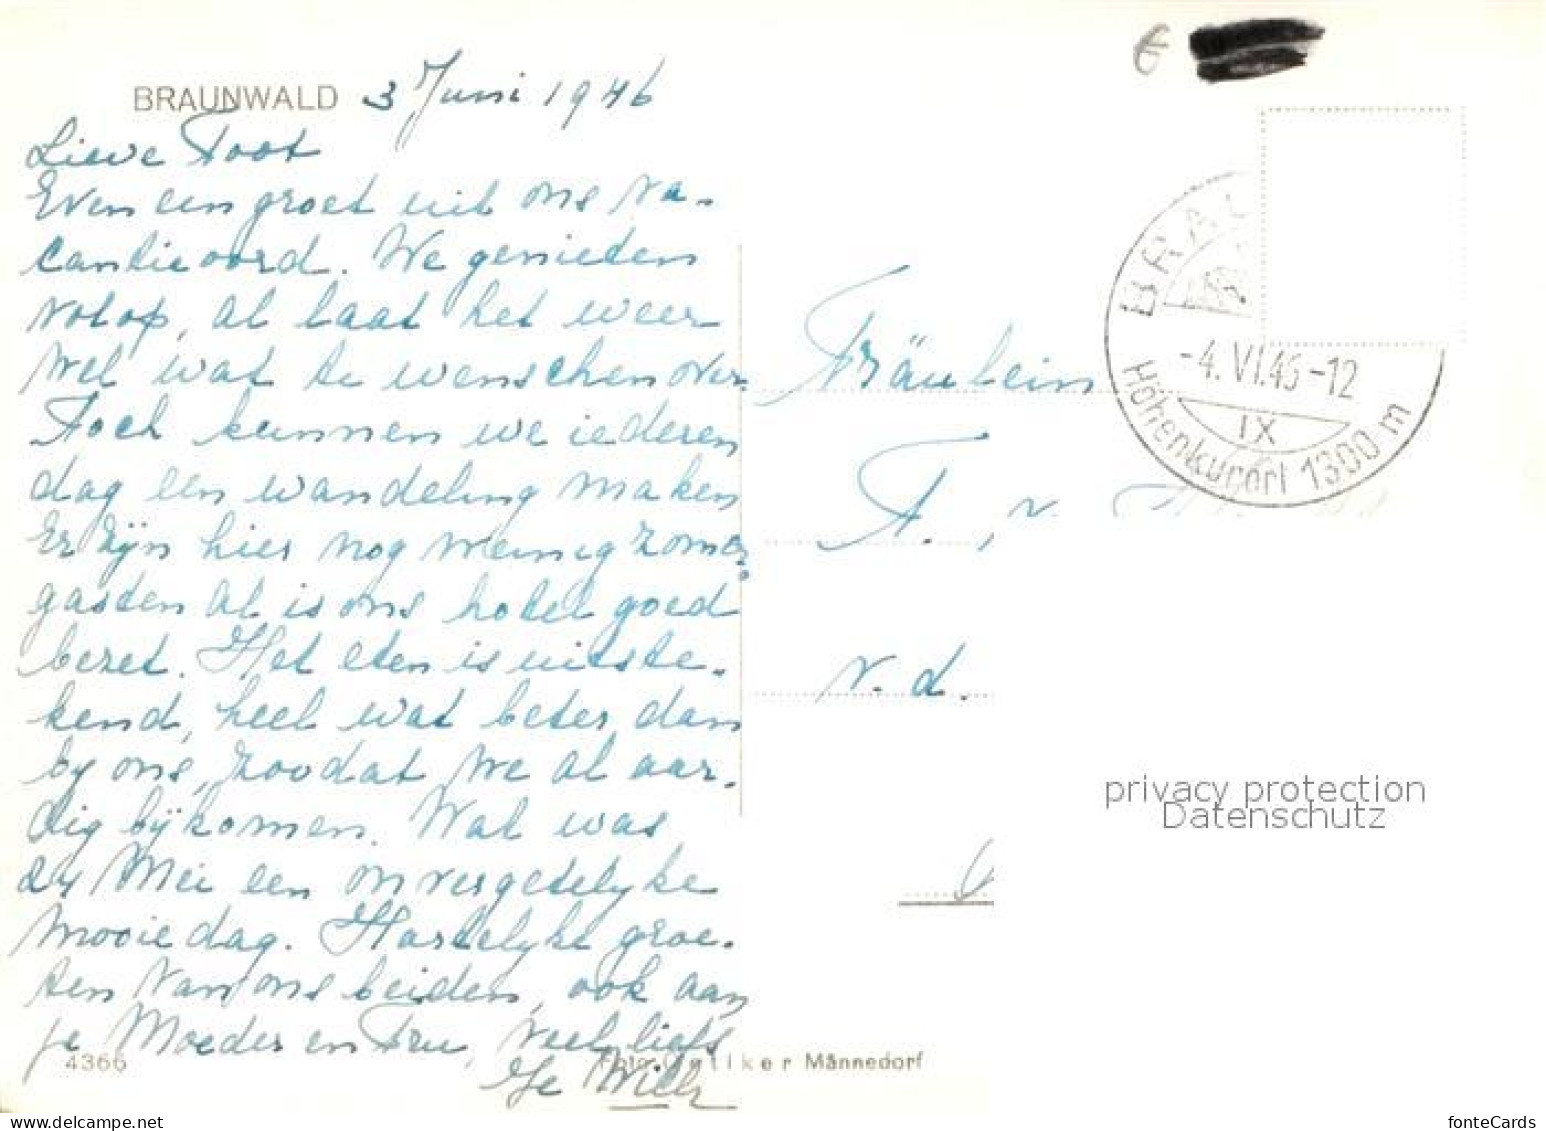 BRAUNWALD 3 Juni 1946
Lieve Toot
Even een groet uit ons va-
cantieoord. We genieten
volop, al laat het weer
wel wat te wenschen over.
Toch kunnen we iederen
dag een wandeling maken
Er zijn hier nog weinig zomer-
gasten al is ons hotel goed
bezet. Het eten is uitste-
kend, heel wat beter dan
by ons, zoodat we al aar-
dig bijkomen. Wat was
24 Mei een onvergetelyke
mooie dag. Hartelyke groe-
ten van ons beiden, ook aan
je Moeder en Tru, veel liefs
je Willy
4366
Foto Oetiker Männedorf
Fräulein
T. v.
v. d.
BRAU
-4.VI.46-12
IX
Höhenkurort 1300 m
privacy protection
Datenschutz
fonteCards